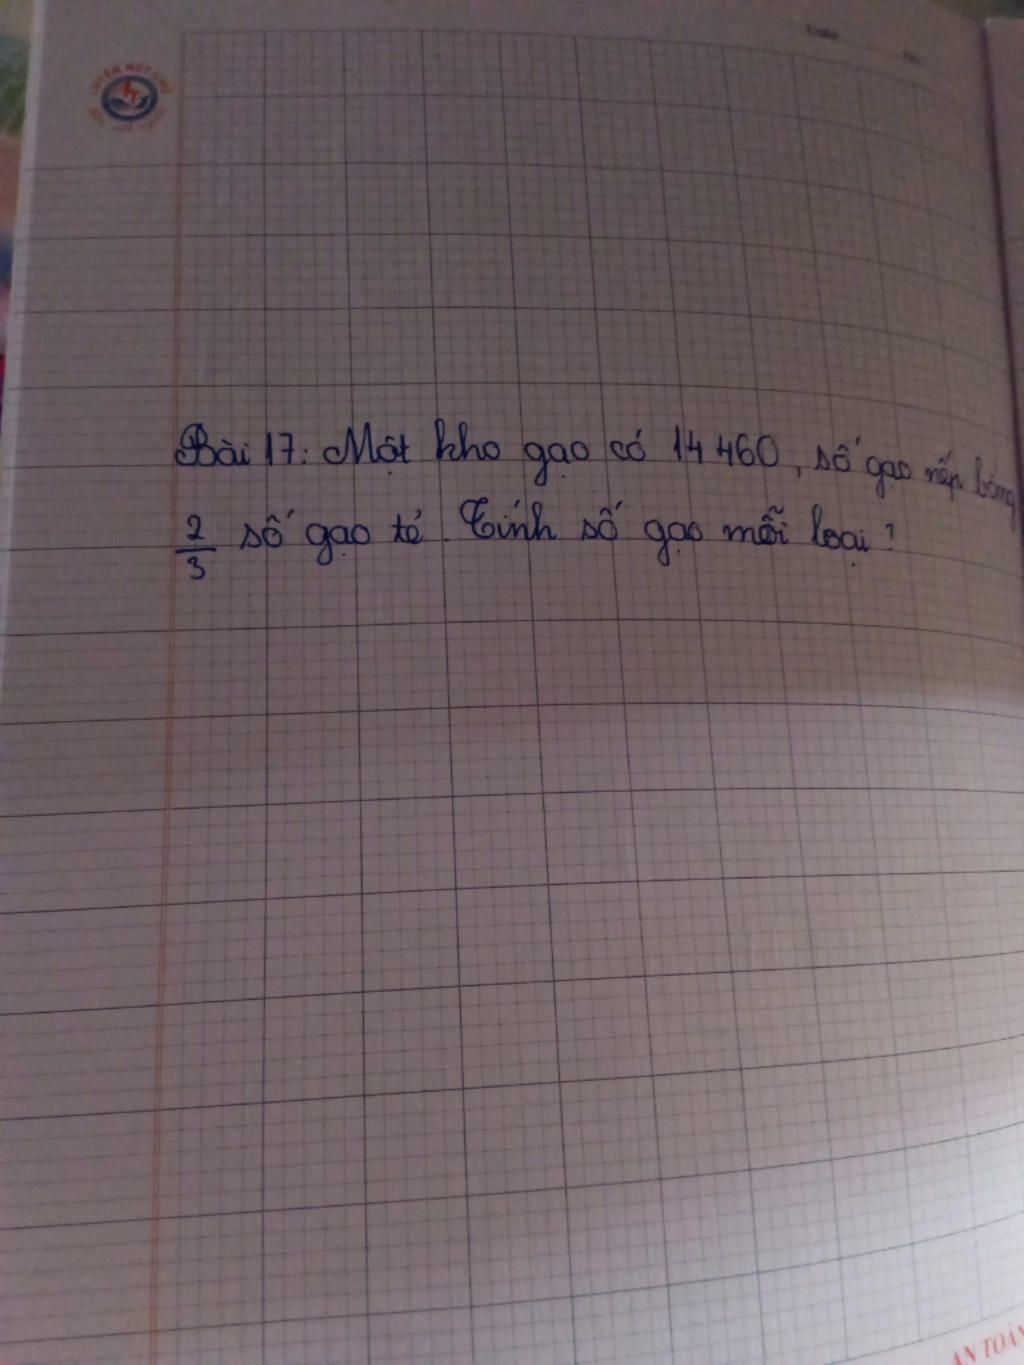 Bài 17: Một kho gạo có 14 460, số gạo nếp bằng
2/3 số gạo tẻ. Tính số gạo mỗi loại?
AN TOÀN